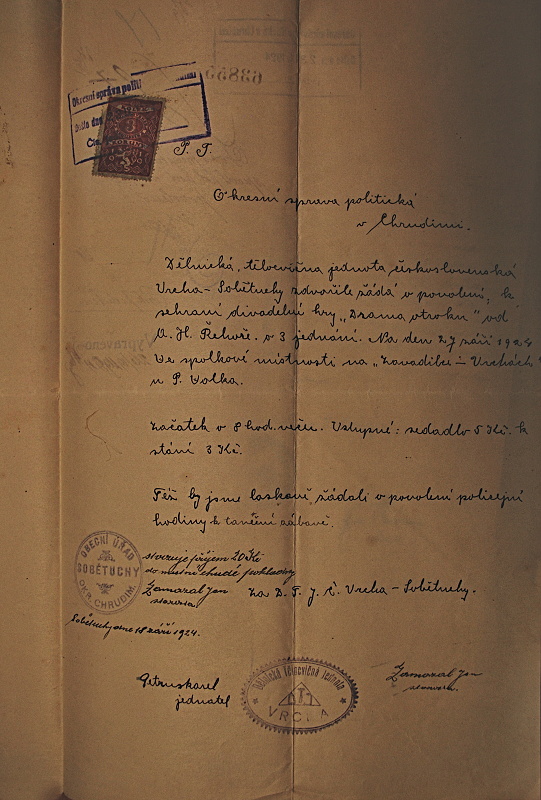 Okresní správa polit
Došlo dne
Čís.
P. T.
Okresní správa politická
v Chrudimi.
Dělnická tělocvičná jednota československá
Vrcha-Sobětuchy zdvořile žádá o povolení, k
sehraní divadelní hry „Drama otroků" od
A. H. Řehoře. o 3 jednání. Na den 27 září 1924
Ve spolkové místnosti na „Zavadilce – Vrchách"
u P. Volka.
Začátek o 8 hod. večer. Vstupné: sedadlo 5 Kč. k
stání 3 Kč.
Též by jsme laskavě žádali o povolení policejní
hodiny k taneční zábavě.
OBECNÍ ÚŘAD
SOBĚTUCHY
OKR. CHRUDIM
stvrzuje příjem 20 Kč
do místní chudé pokladny
Zamazal Jan
starosta
Za D. T. J. Č. Vrcha-Sobětuchy.
Sobětuchy dne 18 září 1924.
jednatel
Dělnická tělocvičná jednota
VRCHA
Zamazal Jan